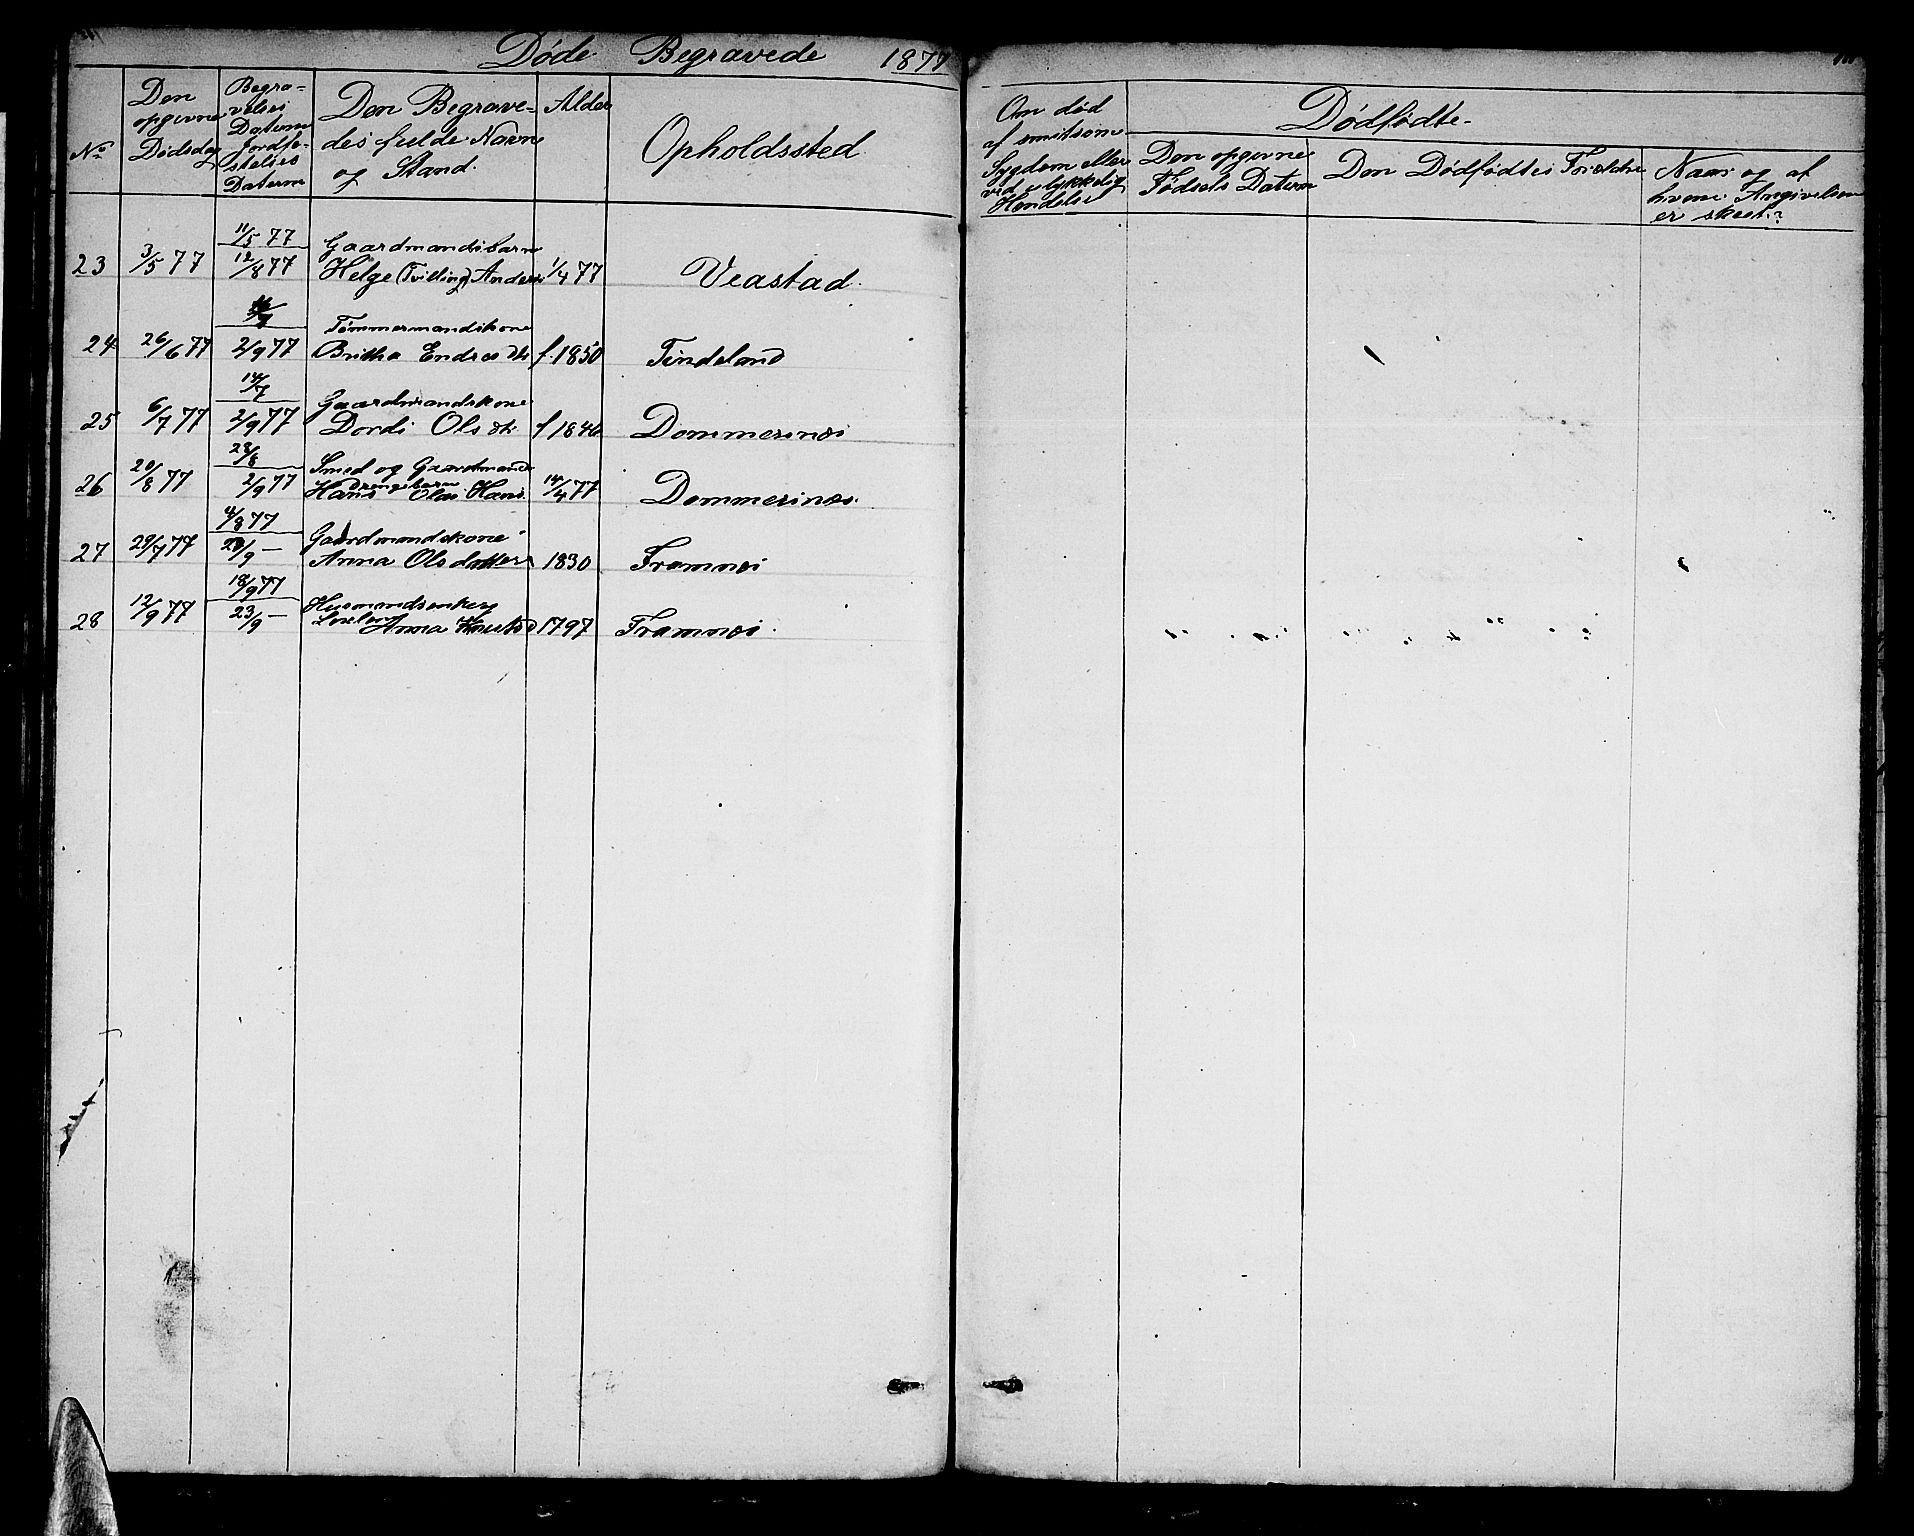 Døde Begravede 1877
No
Den opgivne Dødsdag
Begra-
velses
Datum
Jordfæ-
stelses
Datum
Den Begrave-
des fulde Navn
og Stand.
Alder
Opholdssted
Om død
af smitsom
Sygdom eller
ved ulykkelig
Hændelse
Dødfødte.
Den opgivne
Fødsels Datum
Den Dødfødtes Forældre
Naar og af
hvem Angivelsen
er skeet?
23 3/5 77 11/5 77 12/8 77 Gaardmandsbarn
Helge (Tvilling) Anders 1/4 77 Veastad.
24 26/6 77 2/9 77 Tømmermandskone
Britha Endresdtr f. 1850 Tindeland
25 6/7 77 14/7 2/9 77 Gaardmandskone
Dordi Olsdtr f 1840 Dommersnæs
26 20/8 77 28/8 2/9 77 Smed og Gaardmands
drengebarn
Hans Olai Hans. 14/4 77 Dommersnæs.
27 29/7 77 4/8 77 23/9 — Gaardmandskone
Anna Olsdatter 1830 Framnæs
28 12/9 77 18/9 77 23/9 — Husmandsenke
Anna 1797 Framnæs.